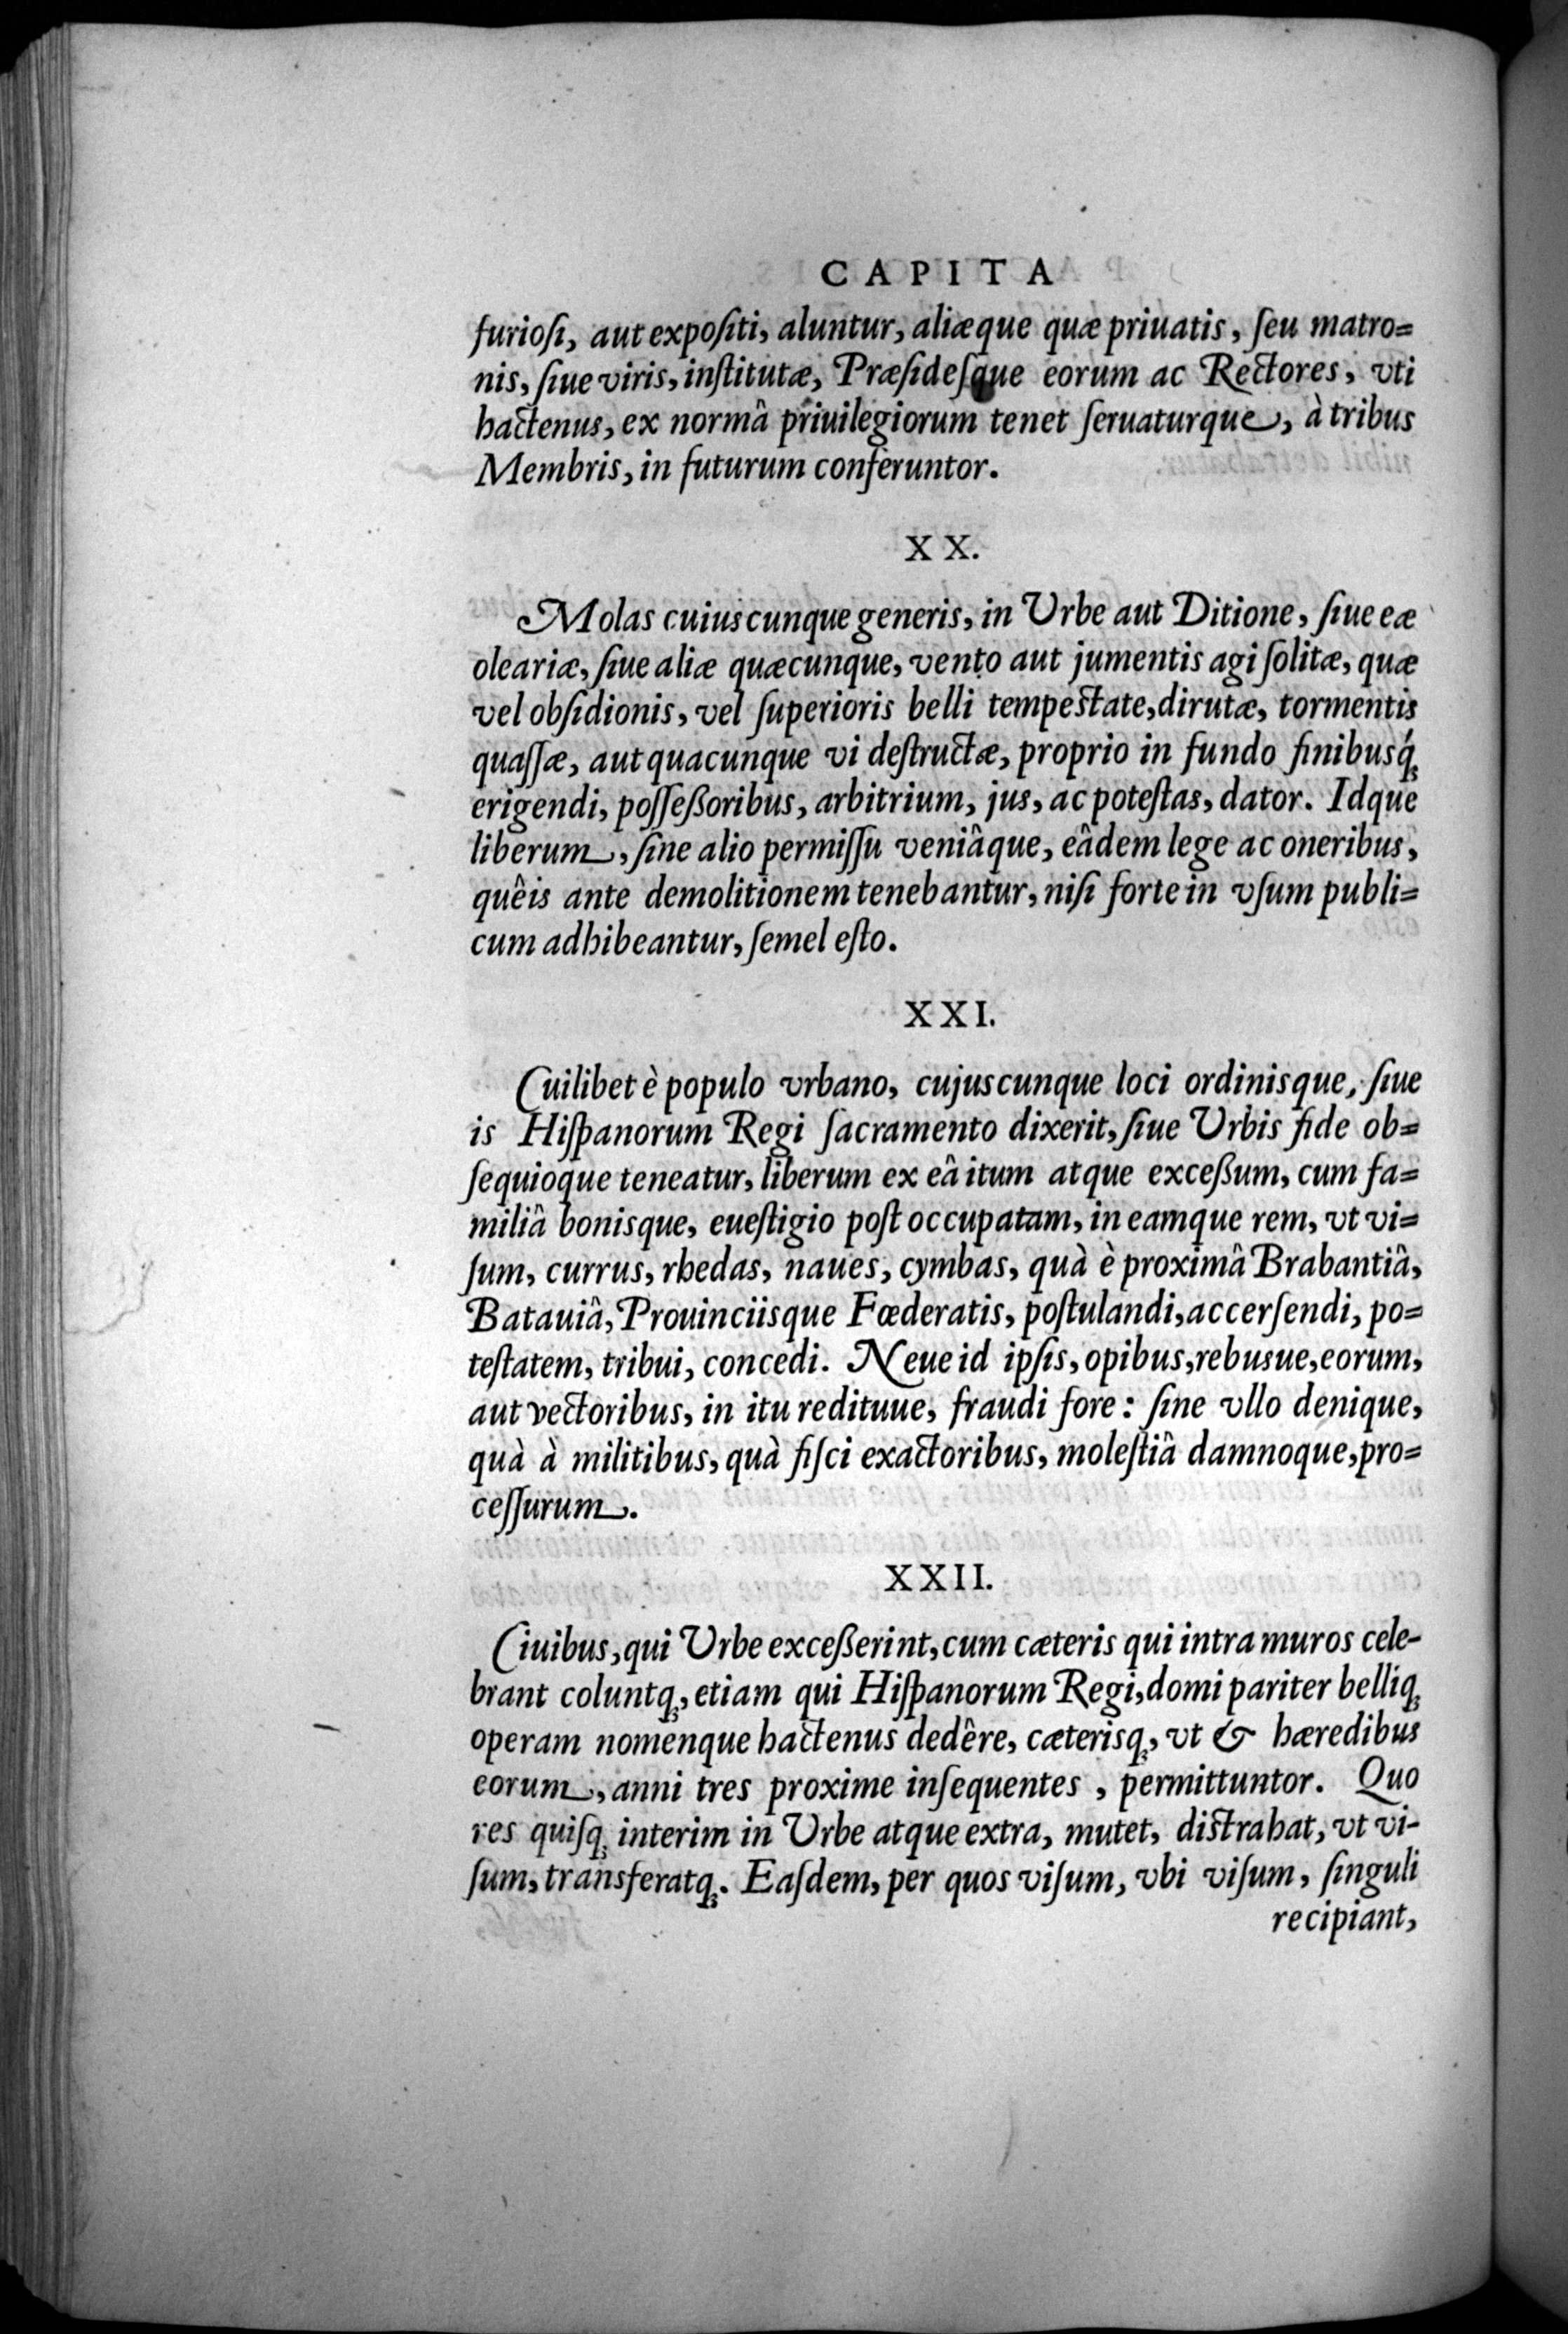 CAPITA
furioſi, aut expoſiti, aluntur, aliæque quæ priuatis, ſeu matro=
nis, ſiue viris, inſtitutæ, Præſideſque eorum ac Rectores, vti
hactenus, ex normâ priuilegiorum tenet ſeruaturque, à tribus
Membris, in futurum conferuntor.
XX.
Molas cuiuscunque generis, in Urbe aut Ditione, ſiue eæ
oleariæ, ſiue aliæ quæcunque, vento aut jumentis agi ſolitæ, quæ
vel obſidionis, vel ſuperioris belli tempeſtate, dirutæ, tormentis
quaſſæ, aut quacunque vi deſtructæ, proprio in fundo finibusq́ꝫ
erigendi, poſſeßoribus, arbitrium, jus, ac poteſtas, dator. Idque
liberum, ſine alio permiſſu veniâque, eâdem lege ac oneribus,
quêis ante demolitionem tenebantur, niſi forte in vſum publi=
cum adhibeantur, ſemel eſto.
XXI.
Cuilibet è populo vrbano, cujuscunque loci ordinisque, ſiue
is Hiſpanorum Regi ſacramento dixerit, ſiue Urbis fide ob=
ſequioque teneatur, liberum ex eâ itum atque exceßum, cum fa=
miliâ bonisque, eueſtigio poſt occupatam, in eamque rem, vt vi=
ſum, currus, rhedas, naues, cymbas, quà è proximâ Brabantiâ,
Batauiâ, Prouinciisque Fœderatis, poſtulandi, accerſendi, po=
teſtatem, tribui, concedi. Neue id ipſis, opibus, rebusue, eorum,
aut vectoribus, in itu redituue, fraudi fore: ſine vllo denique,
quà à militibus, quà fiſci exactoribus, moleſtiâ damnoque, pro=
ceſſurum.
XXII.
Ciuibus, qui Urbe exceßerint, cum cæteris qui intra muros cele-
brant coluntqꝫ, etiam qui Hiſpanorum Regi, domi pariter belliqꝫ
operam nomenque hactenus dedêre, cæterisqꝫ, vt & hæredibus
eorum, anni tres proxime inſequentes, permittuntor. Quo
res quiſqꝫ interim in Urbe atque extra, mutet, diſtrahat, vt vi-
ſum, transferatqꝫ. Eaſdem, per quos viſum, vbi viſum, ſinguli
recipiant,